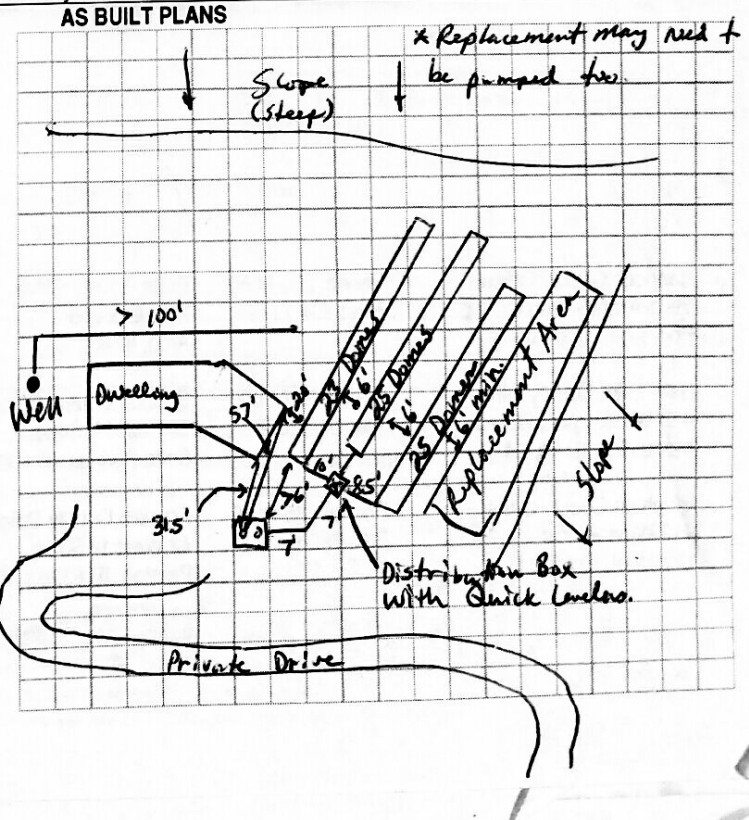 AS BUILT PLANS
* Replacement may need t
be pumped too.
Slope
(steep)
> 100'
Well
Dwelling
57'
20'
23 Domes
6'
25 Domes
6'
25 Domes
6' min.
Replacement Area
Slope
10'
31.5'
>6'
7'
7'
Distribution Box
with Quick Levelers.
Private Drive